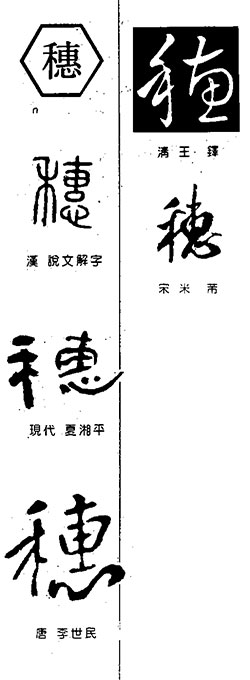 穗
穗
漢 說文解字
穗
現代 夏湘平
穗
唐 李世民
穗
清 王 鐸
穗
宋 米 芾